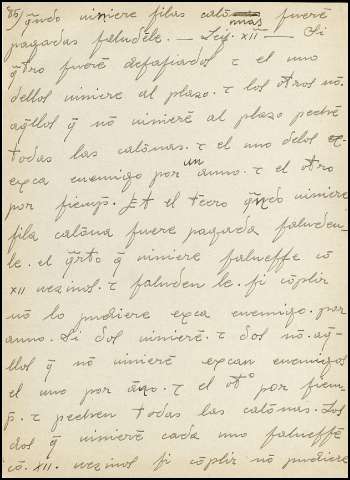 85) q̃ndo viniere si las calõ mas fuerẽ
pagadas saludẽle. — Ley. XIIª — Si
q̃tro fuerẽ desafiados τ el uno
dellos viniere al plazo. τ los otros nõ.
aq̃llos q̃ nõ vinierẽ al plazo pechẽ
todas las calõnas. τ el uno dellos
exca enemigo por un anno. τ el otro
por siemp̃. Et el tecro q̃ndo viniere
si la calõna fuere pagada saluden-
le. el q̃rto q̃ viniere salvesse cõ
XII vezinos. τ saluden le. si cõplir
nõ lo pudiere exca enemigo. por
anno. Si dos vinierẽ. τ dos nõ. aq̃-
llos q̃ nõ vinierẽ excan enemigos
el uno por año. τ el otº por siem-
p̃. τ pechen todas las calõnas. Los
dos q̃ vinierẽ cada uno salvessẽ
cõ. XII. vezinos si cõplir nõ pudiere